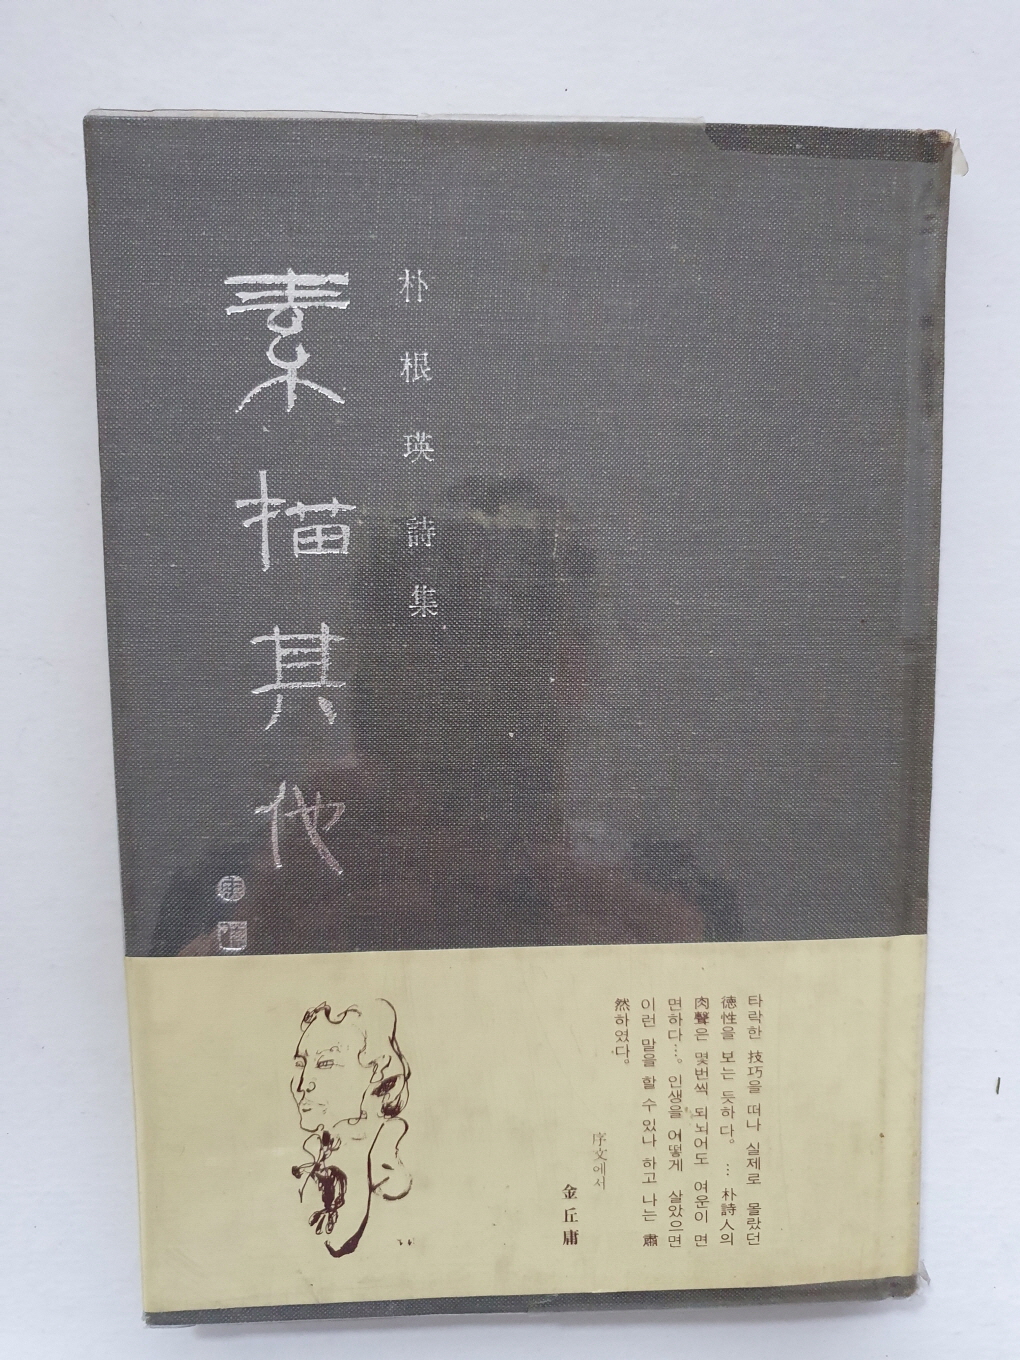 朴根瑛詩集
素描其他
타락한 技巧을 떠나 실제로 몰랐던
德性을 보는 듯하다。 … 朴詩人의
肉聲은 몇번씩 되뇌어도 여운이 면
면하다…。 인생을 어떻게 살았으면
이런 말을 할 수 있나 하고 나는 肅
然하였다。
序文에서
金丘庸